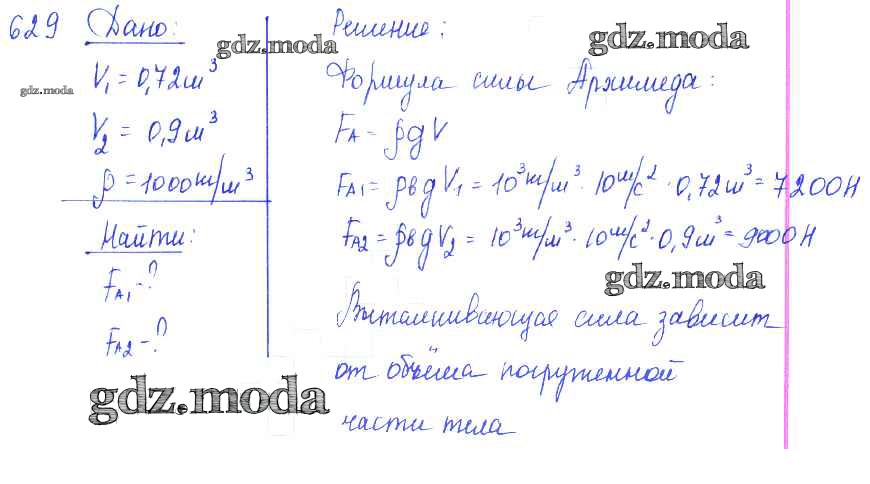 629 Дано:
V₁ = 0,72 м³
V₂ = 0,9 м³
ρ = 1000 кг/м³
Найти:
F_A1 - ?
F_A2 - ?
Решение:
Формула силы Архимеда:
F_A = ρgV
F_A1 = ρвgV₁ = 10³ кг/м³ · 10 м/с² · 0,72 м³ = 7200Н
F_A2 = ρвgV₂ = 10³ кг/м³ · 10 м/с² · 0,9 м³ = 9000Н
Выталкивающая сила зависит
от объёма погруженной
части тела
gdz.moda
gdz.moda
gdz.moda
gdz.moda
gdz.moda